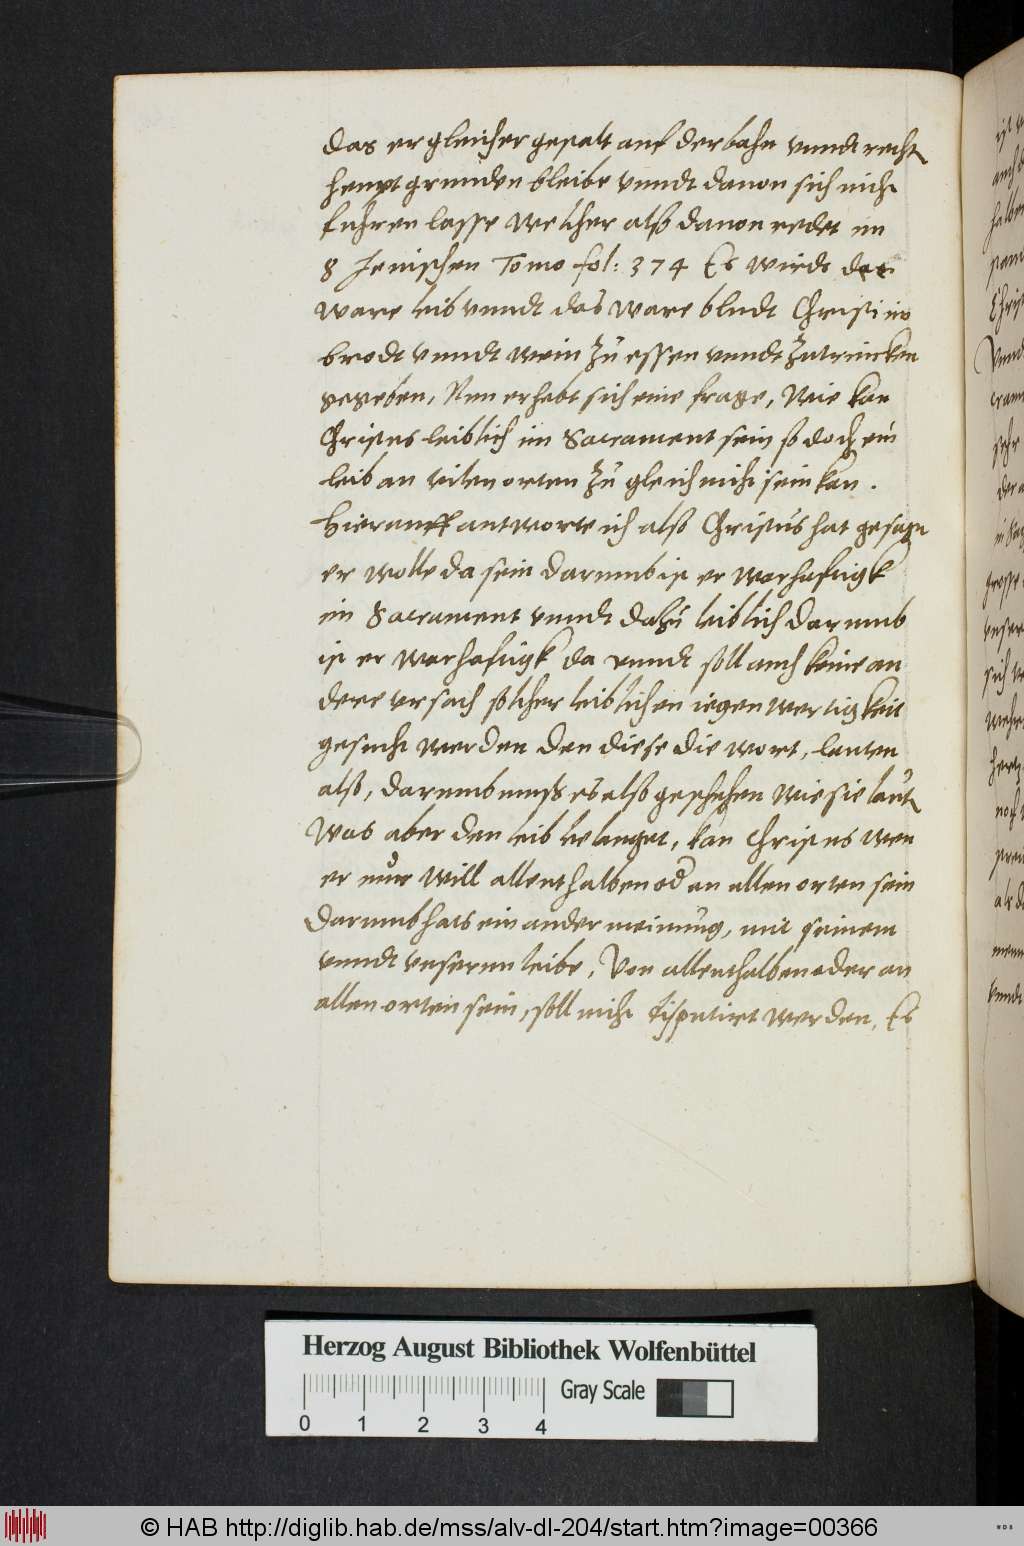 das er gleicher gestalt auf der bahn vnndt rechtn
heupt grunden bleibe vnndt dauon sich nicht
fuhren lasse welcher alß dauon redet im
8 Jenischen Tomo fol: 374 Es wirdt der
ware leib vnndt das ware bludt Christi im
brodt vnndt wein zu essen vnndt zutrincken
gegeben, Nun erhebt sich eine frage, Wie kan
Christus leiblich im Sacrament sein so doch ein
leib an vilen orten zu gleich nicht sein kan.
Hierauff antworte ich alß Christus hat gesagt
er wolle da sein darumb ist er warhafftigk
im Sacrament vnndt dazu leiblich darumb
ist er warhafftigk da vnndt soll auch keine an
dere vrsach solcher leiblichen iegenwertigkeit
gesucht werden den diese die wort, lauten
alß, darumb muß es alß geschehen wie sie lautn
Was aber den leib belanget, kan Christus wen
er nur will allenthalben od an allen orten sein
Darumb hats ein ander meinung, mit seinem
vnndt vnserm leibe, Von allenthalben oder an
allen orten sein, soll nicht disputirt werden, Es
Herzog August Bibliothek Wolfenbüttel
Gray Scale
0 1 2 3 4
© HAB http://diglib.hab.de/mss/alv-dl-204/start.htm?image=00366